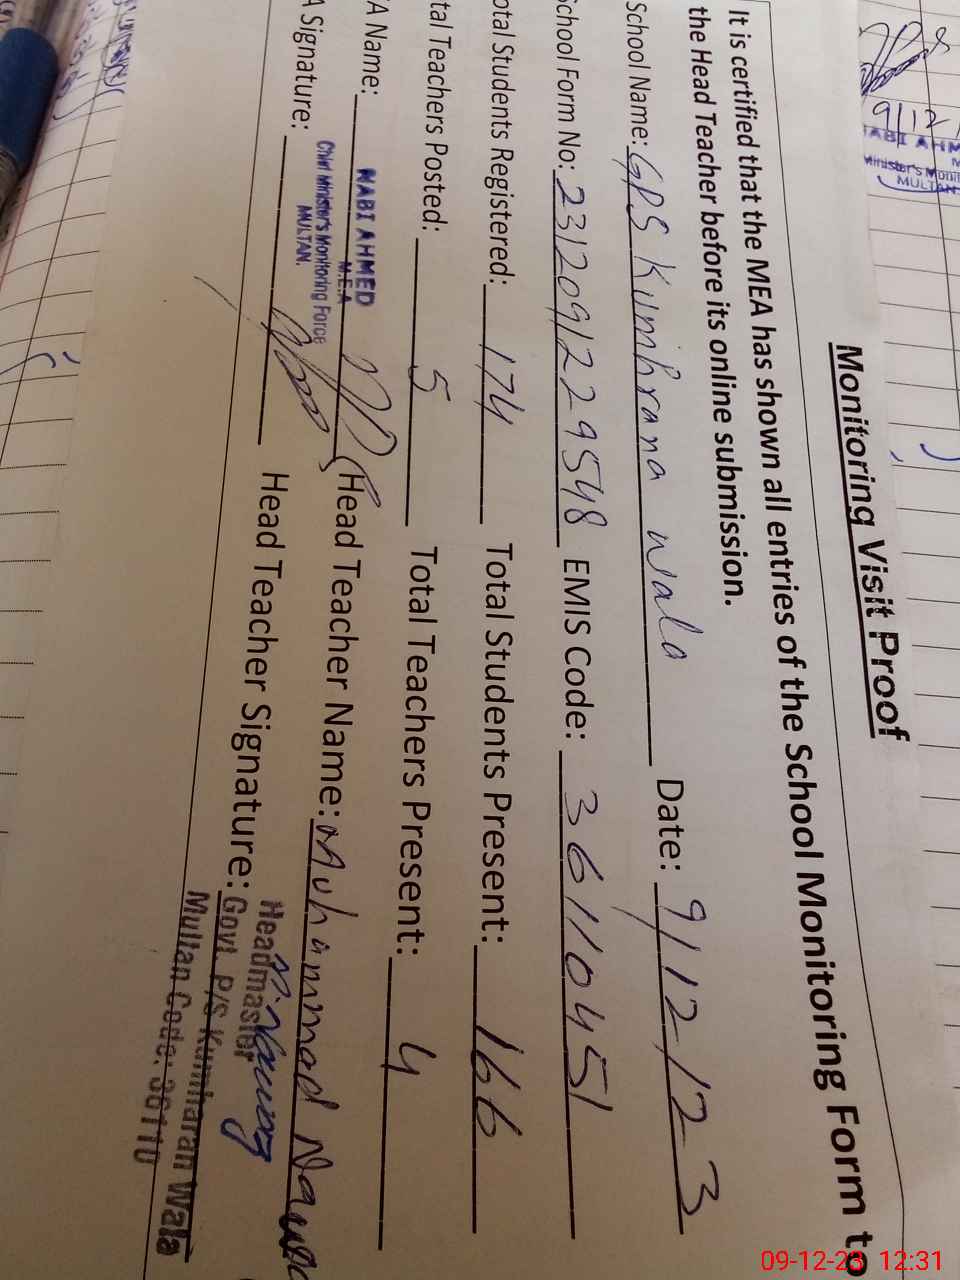 Monitoring Visit Proof
It is certified that the MEA has shown all entries of the School Monitoring Form to
the Head Teacher before its online submission.
School Name: GPS Kumhrana wala Date: 9/12/23
School Form No: 2312091229548 EMIS Code: 36110451
otal Students Registered: 174 Total Students Present: 166
tal Teachers Posted: 5 Total Teachers Present: 4
A Name: Head Teacher Name: Muhammad
NABI AHMED
M.E.A
Chief Minister's Monitoring Force
MULTAN.
A Signature: Head Teacher Signature:
Headmaster
Govt. P/S Kumharan Wala
Multan Code: 36110
9/12
ABI AHM
Minister's Monit
MULTAN
09-12-23 12:31